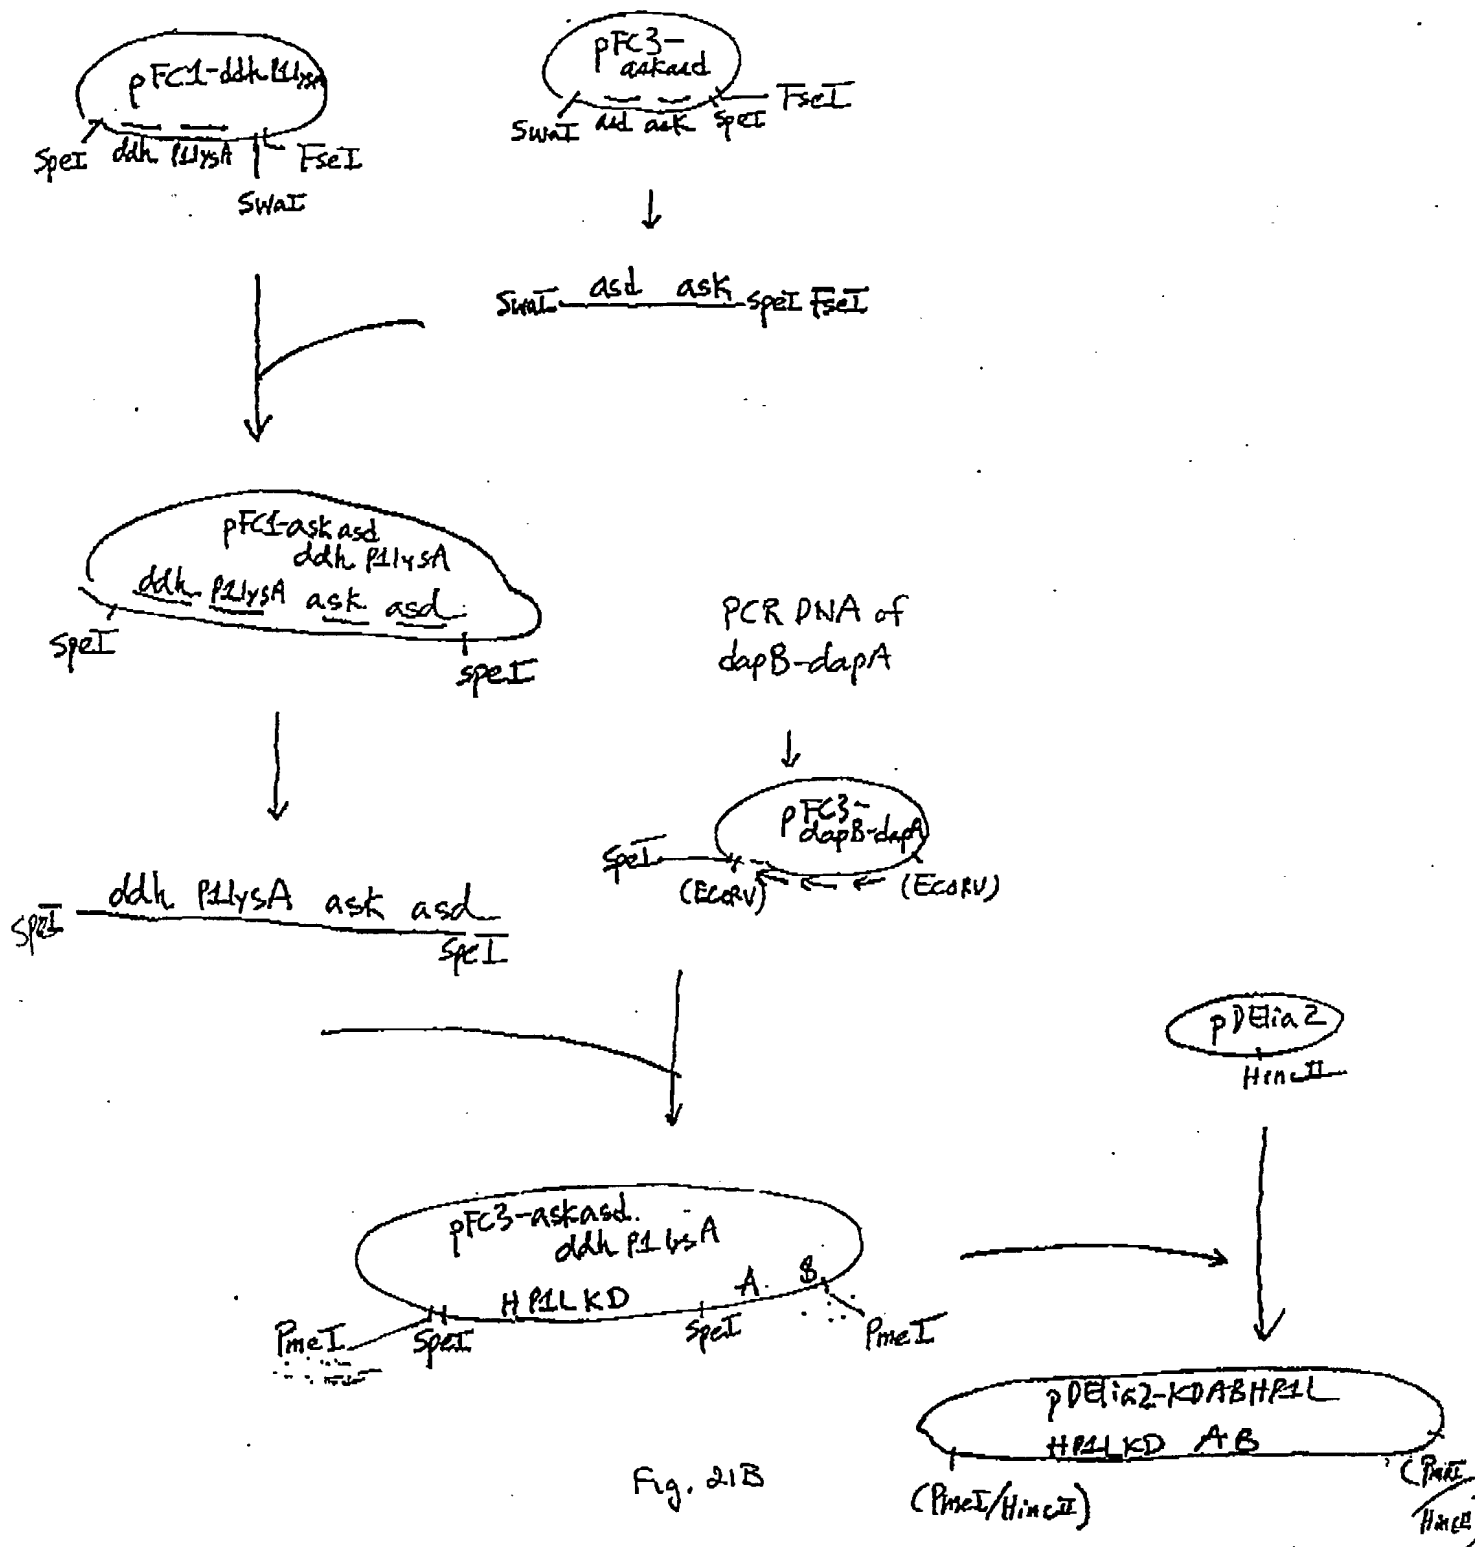 pFC1-ddh P1lysA
SpeI
ddh P1lysA
FseI
SwaI
pFC3-
askasd
SwaI asd ask SpeI
FseI
SwaI asd ask SpeI FseI
pFC1-ask asd
ddh P1lysA
ddh P1lysA ask asd
SpeI
SpeI
PCR DNA of
dapB-dapA
pFC3-
dapB-dapA
SpeI
(EcoRV)
(EcoRV)
ddh P1lysA ask asd
SpeI
SpeI
pDElia2
HincII
pFC3-askasd
ddh P1lysA
HP1LKD A B
PmeI
SpeI
SpeI
PmeI
pDElia2-KDABHP1L
HP1LKD AB
(PmeI/HincII)
(PmeI
HincII)
Fig. 21B